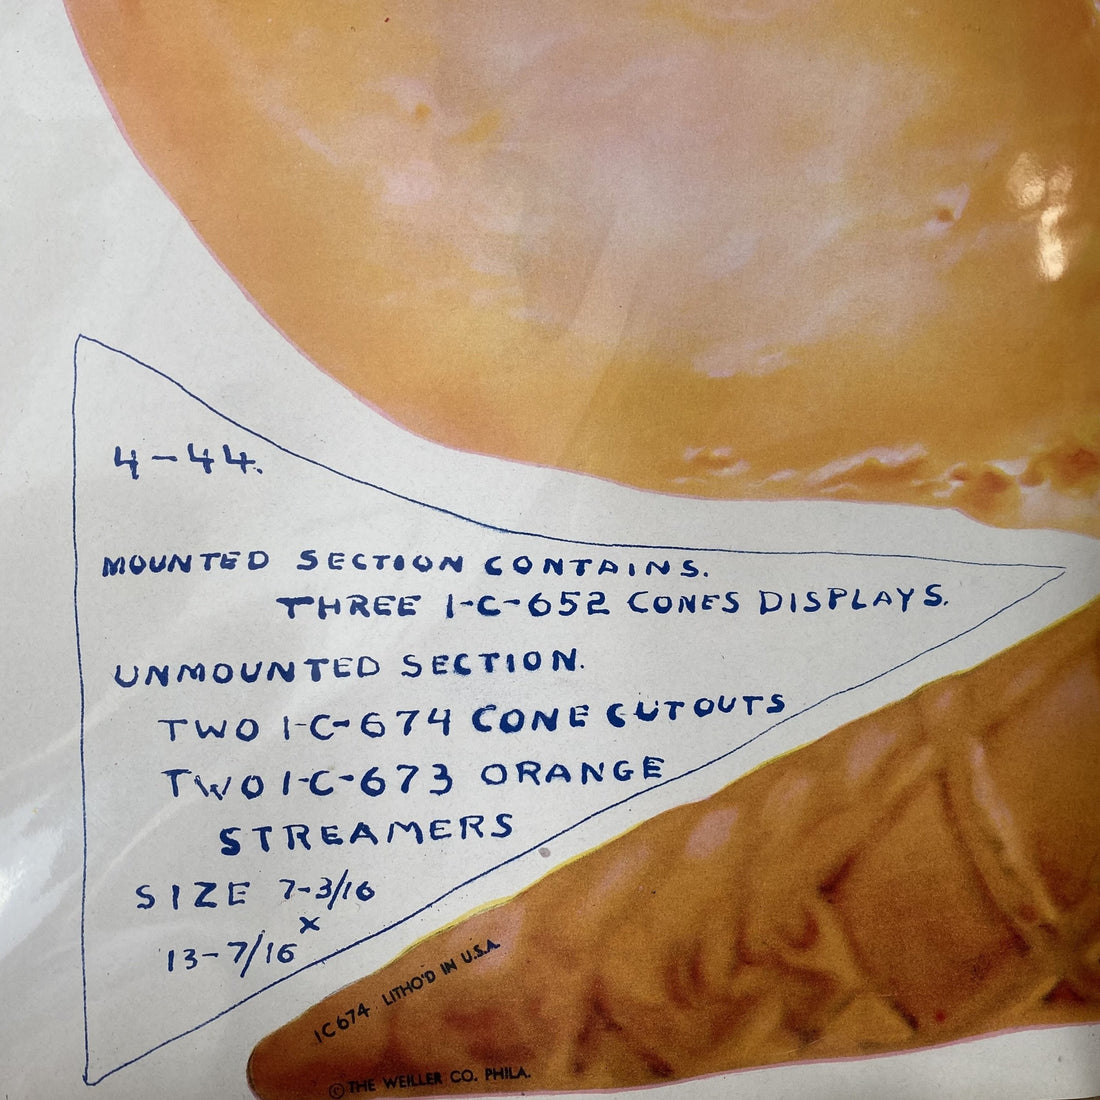 4-44.
MOUNTED SECTION CONTAINS.
THREE I-C-652 CONES DISPLAYS.
UNMOUNTED SECTION.
TWO I-C-674 CONE CUTOUTS
TWO I-C-673 ORANGE
STREAMERS
SIZE 7-3/16
x
13-7/16
IC 674 LITHO'D IN U.S.A.
© THE WEILLER CO. PHILA.